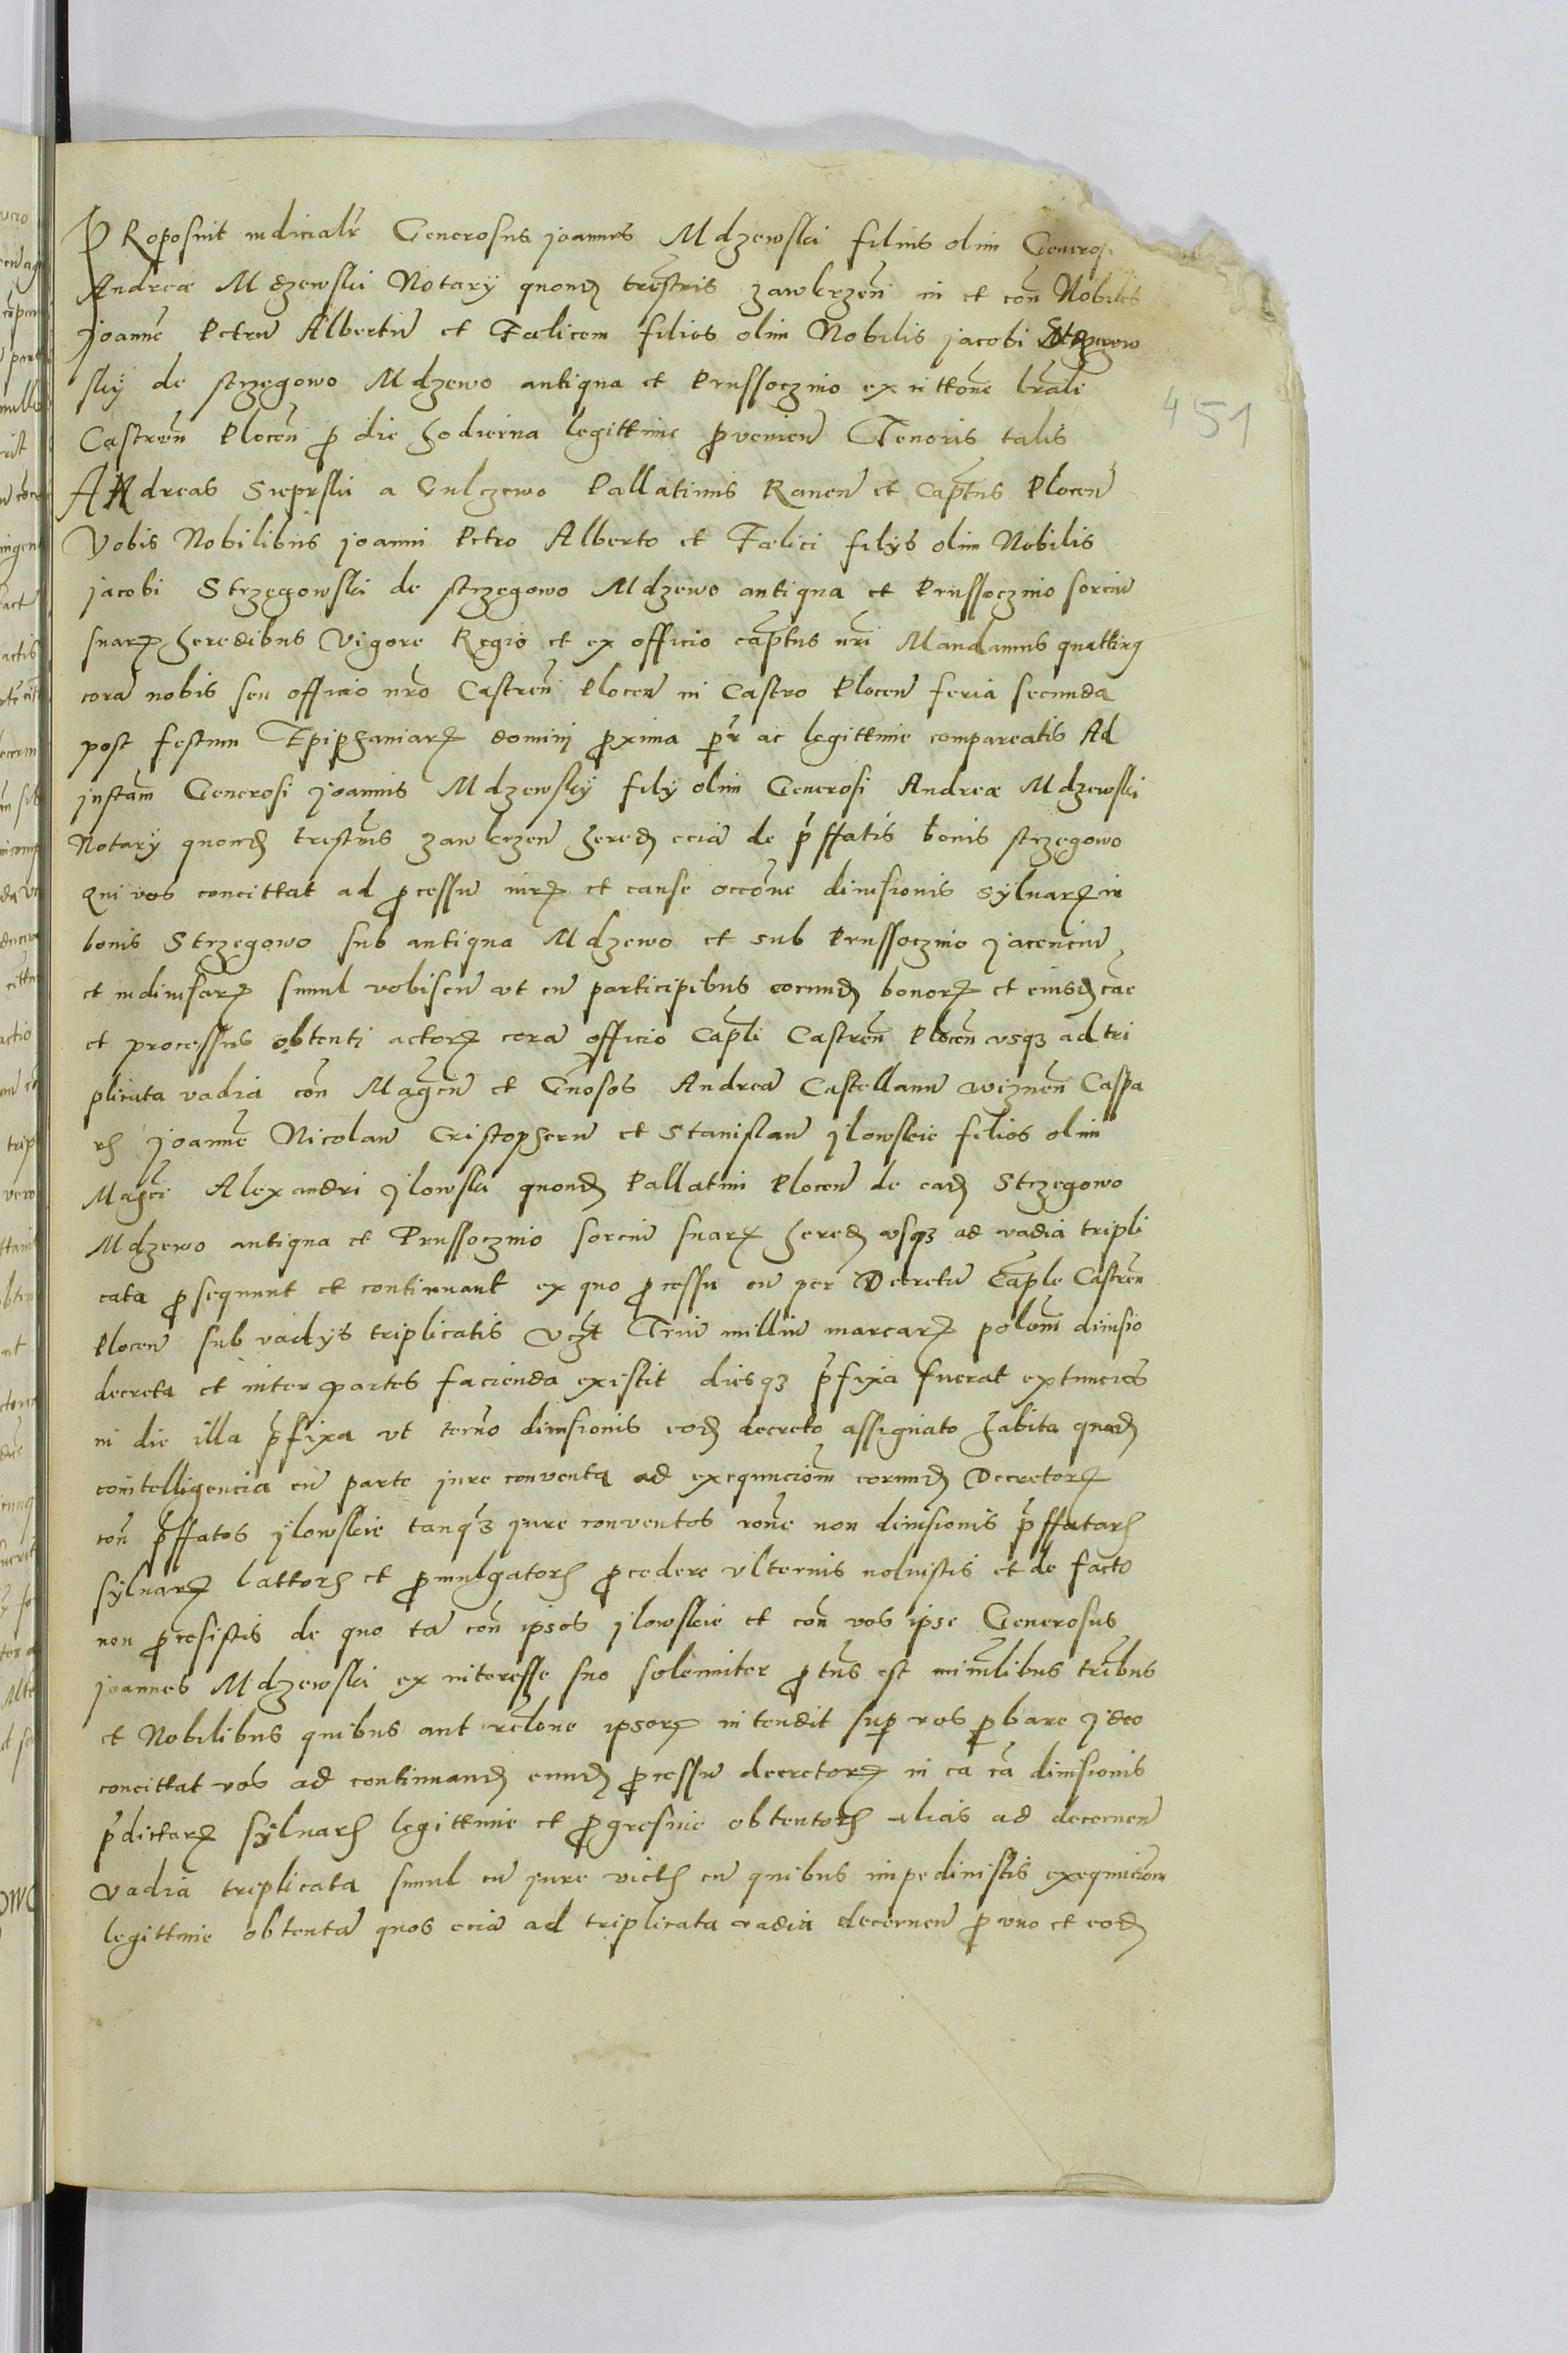 PRoposuit iudicialr Generosus joannes Mdzewski filius olim Generosi
Andreæ Mdzewski Notarÿ quond trestris zawkrzen in et con Nobiles
Joanne Petru Albertu et Fælicem filios olim Nobilis jacobi Strzegow
skÿ de strzegowo Mdzewo antiqua et Prussoczino ex cittone lrali
Castren Plocen p die hodierna legittime pvenien Tenoris talis
ANdreas Sieprski a Gulczewo Pallatinus Rauen et Captus Plocen
Vobis Nobilibus joanni Petro Alberto et Fælici filÿs olim Nobilis
jacobi Strzęgowski de strzęgowo Mdzewo antiqua et Prussoczino sorciu
suarz heredibus Vigore Regio et ex officio captus nri Mandamus quattinq
cora nobis seu officio nro Castren Plocen in Castro Plocen feria secunda
post festum Epiphaniarz domini pxima pr ac legittime compareatis Ad
jnstam Generosi joannis Mdzewskÿ filÿ olim Generosi Andreæ Mdzewski
Notarÿ quond trestris zawkrzen hered ecia de pffatis bonis strzęgowo
Qui vos concittat ad pcessu iurz et cause occone diuisionis syluarz in
bonis Strzegowo sub antiqua Mdzewo et sub Prussoczino jacenciu
et indiuisarz simul vobiscu vt cu participibus eorund bonorz et eiusd cae
et processus obtenti actorz cora officio Capli Castren Plocen vsqz ad tri
plicata vadia con Magcu et Gnosos Andrea Castellanu wiznen Caspa
rh joanne Nicolau Cristopheru et Stanislau jlowskie filios olim
Magci Alexandri jlowski quond Pallatini Plocen de ead Strzegowo
Mdzewo antiqua et Prussoczino sorciu suarz hered vsqz ad vadia tripli
cata psequunt et continuant ex quo pcessu cu per Decretu Caple Castren
Plocen sub vadÿs triplicatis vczt Triu milliu marcarz poloni diuisio
decreta et inter partes facienda existit diesqz pfixa fuerat extuncvos
in die illa pfixa vt termo diuisionis eod decreto assignato habita quad
cointelligencia cu parte jure conventa ad exequuciom eorund Decretorz
con pffatos jlowskie tanqz jure conventos rone non diuisionis pffatarh
syluarz lattorh et pmulgatorh pcedere vlterius noluistis et de facto
non pcesistis de quo ta con ipsos jlowskie et con vos ipse Generosus
joannes Mdzewski ex interesse suo solenniter ptus est mimlibus tribus
et Nobilibus quibus aut relone ipsorz intendit sup vos pbare jdeo
concittat vos ad continuand eund pcessu decretorz in ca ra diuisionis
pdictarz sÿluarh legittime et pgresiue obtentorh alias ad decernen
vadia triplicata simul cu jure victh cu quibus impediuistis exequuciom
legittime obtenta quos ecia ad triplicata vadia decernen p vno et eod
451